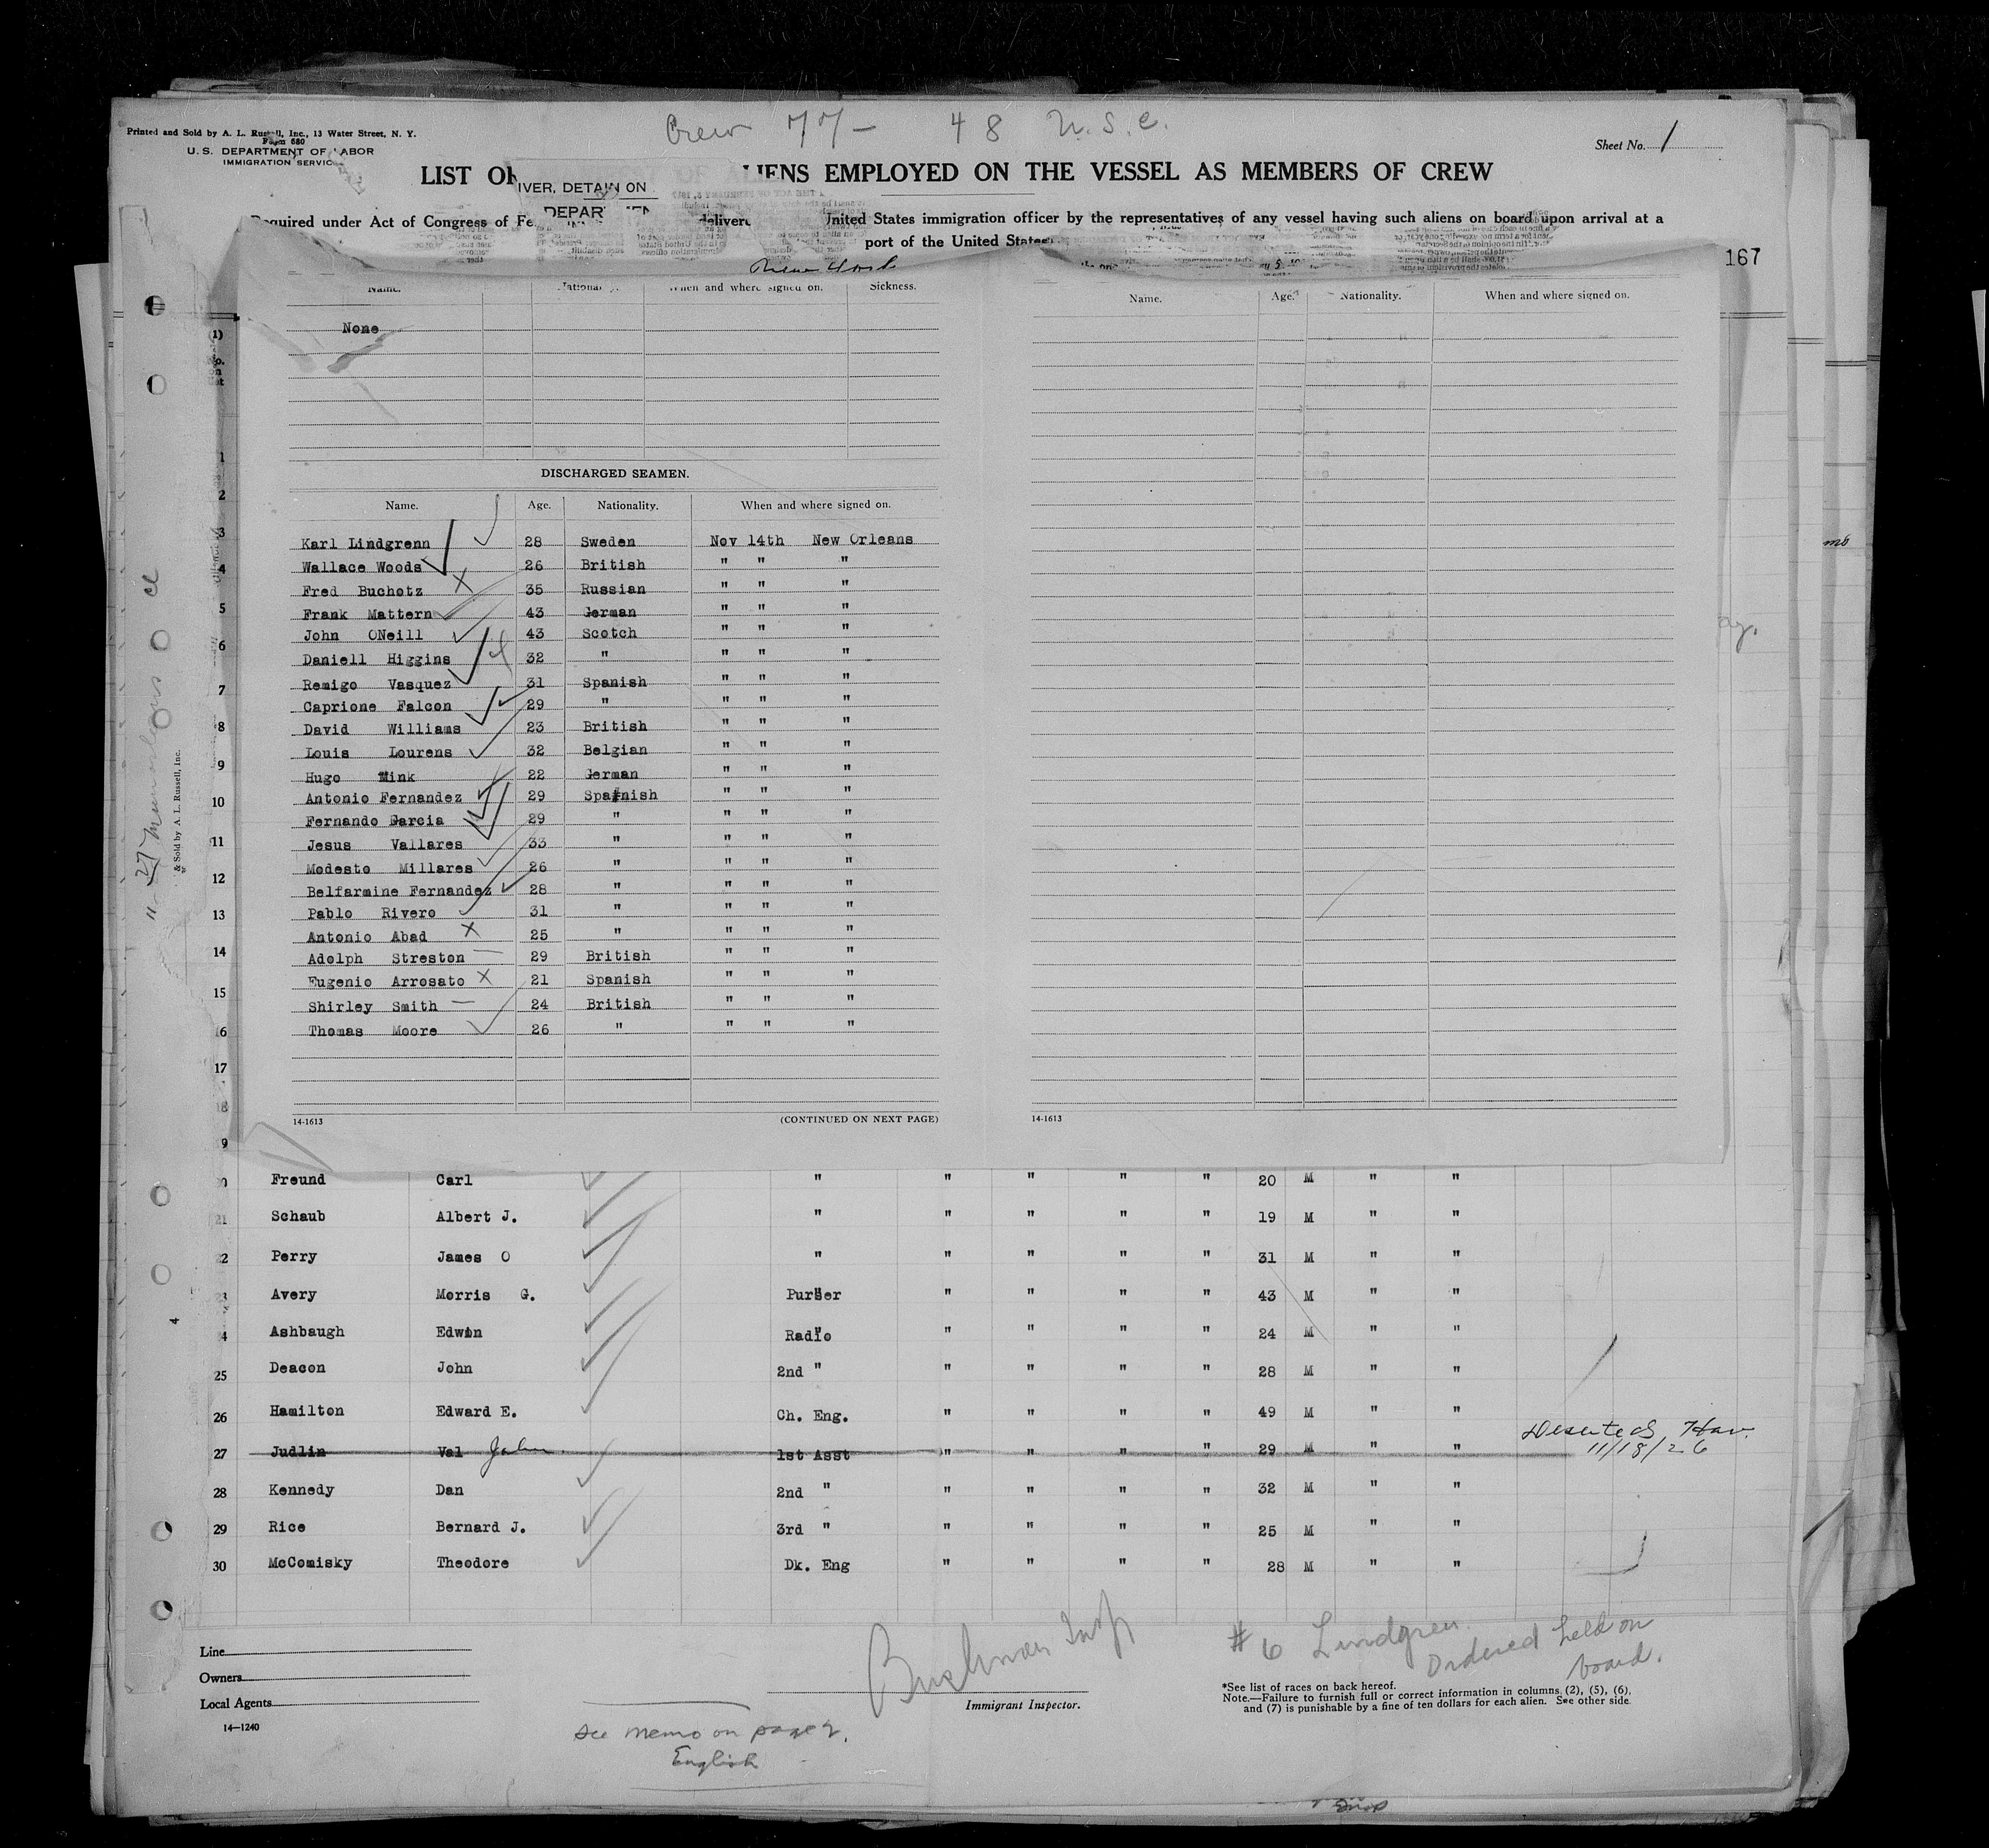 Crew 77 - 48 U.S.C.
Printed and Sold by A. L. Russell, Inc., 13 Water Street, N. Y.
Form 680
U. S. DEPARTMENT OF LABOR
IMMIGRATION SERVIC
Sheet No. 1
LIST OF IENS EMPLOYED ON THE VESSEL AS MEMBERS OF CREW
IVER, DETAIN ON
DEPAR
Required under Act of Congress of Fe delivere United States immigration officer by the representatives of any vessel having such aliens on board upon arrival at a
port of the United States
New York
167
Name. National When and where signed on. Sickness.
Name. Age. Nationality. When and where signed on.
None
DISCHARGED SEAMEN.
Name. Age. Nationality. When and where signed on.
Karl Lindgrenn 28 Sweden Nov 14th New Orleans
Wallace Woods 26 British " " "
Fred Buchotz 35 Russian " " "
Frank Mattern 43 German " " "
John ONeill 43 Scotch " " "
Daniell Higgins 32 " " " "
Remigo Vasquez 31 Spanish " " "
Caprione Falcon 29 " " " "
David Williams 23 British " " "
Louis Lourens 32 Belgian " " "
Hugo Mink 22 German " " "
Antonio Fernandez 29 Spanish " " "
Fernando Garcia 29 " " " "
Jesus Vallares 33 " " " "
Modesto Millares 26 " " " "
Belfarmine Fernandez 28 " " " "
Pablo Rivero 31 " " " "
Antonio Abad 25 " " " "
Adolph Streston 29 British " " "
Eugenio Arrosato 21 Spanish " " "
Shirley Smith 24 British " " "
Thomas Moore 26 " " " "
14-1613 (CONTINUED ON NEXT PAGE)
14-1613
1
2
3
4
5
6
7
8
9
10
11
12
13
14
15
16
17
18
9
& Sold by A. L. Russell, Inc.
4
Freund Carl " " " " " 20 M " "
21 Schaub Albert J. " " " " " 19 M " "
22 Perry James O " " " " " 31 M " "
23 Avery Morris G. Purser " " " " 43 M " "
4 Ashbaugh Edwin Radio " " " " 24 M " "
25 Deacon John 2nd " " " " " 28 M " "
26 Hamilton Edward E. Ch. Eng. " " " " 49 M " "
27 Judlin Val John 1st Asst " " " " 29 M " " Deserted Hav.
11/18/26
28 Kennedy Dan 2nd " " " " " 32 M " "
29 Rice Bernard J. 3rd " " " " " 25 M " "
30 McComisky Theodore Dk. Eng " " " " 28 M " "
Line
Owners
Local Agents
14—1240
Bushman Insp
Immigrant Inspector.
# 6 Lindgren
Ordered held on
board.
*See list of races on back hereof.
Note.—Failure to furnish full or correct information in columns (2), (5), (6),
and (7) is punishable by a fine of ten dollars for each alien. See other side.
see memo on page 2.
English